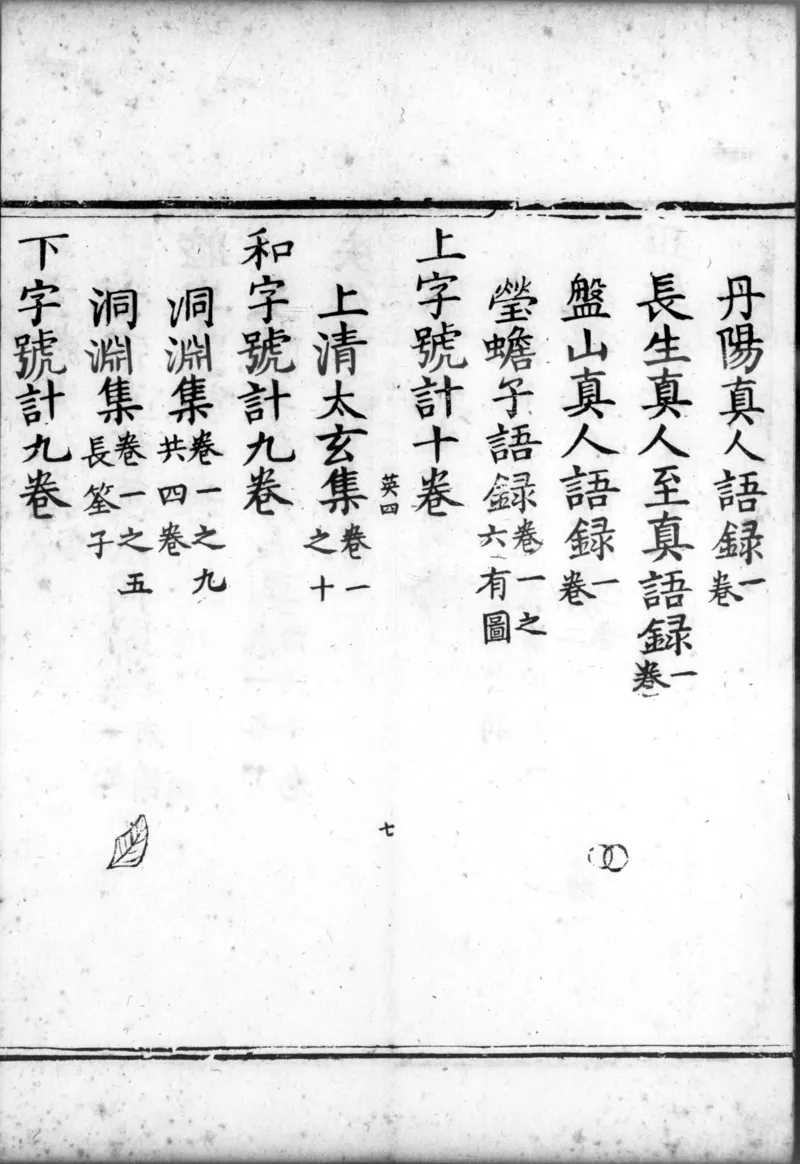 丹陽真人語録一卷
長生真人至真語録一卷
盤山真人語録一卷
瑩蟾子語録卷一之六有圖
上字號計十卷
英四
七
上清太玄集卷一之十
和字號計九卷
洞淵集卷一之九共四卷
洞淵集卷一之五長筌子
下字號計九卷